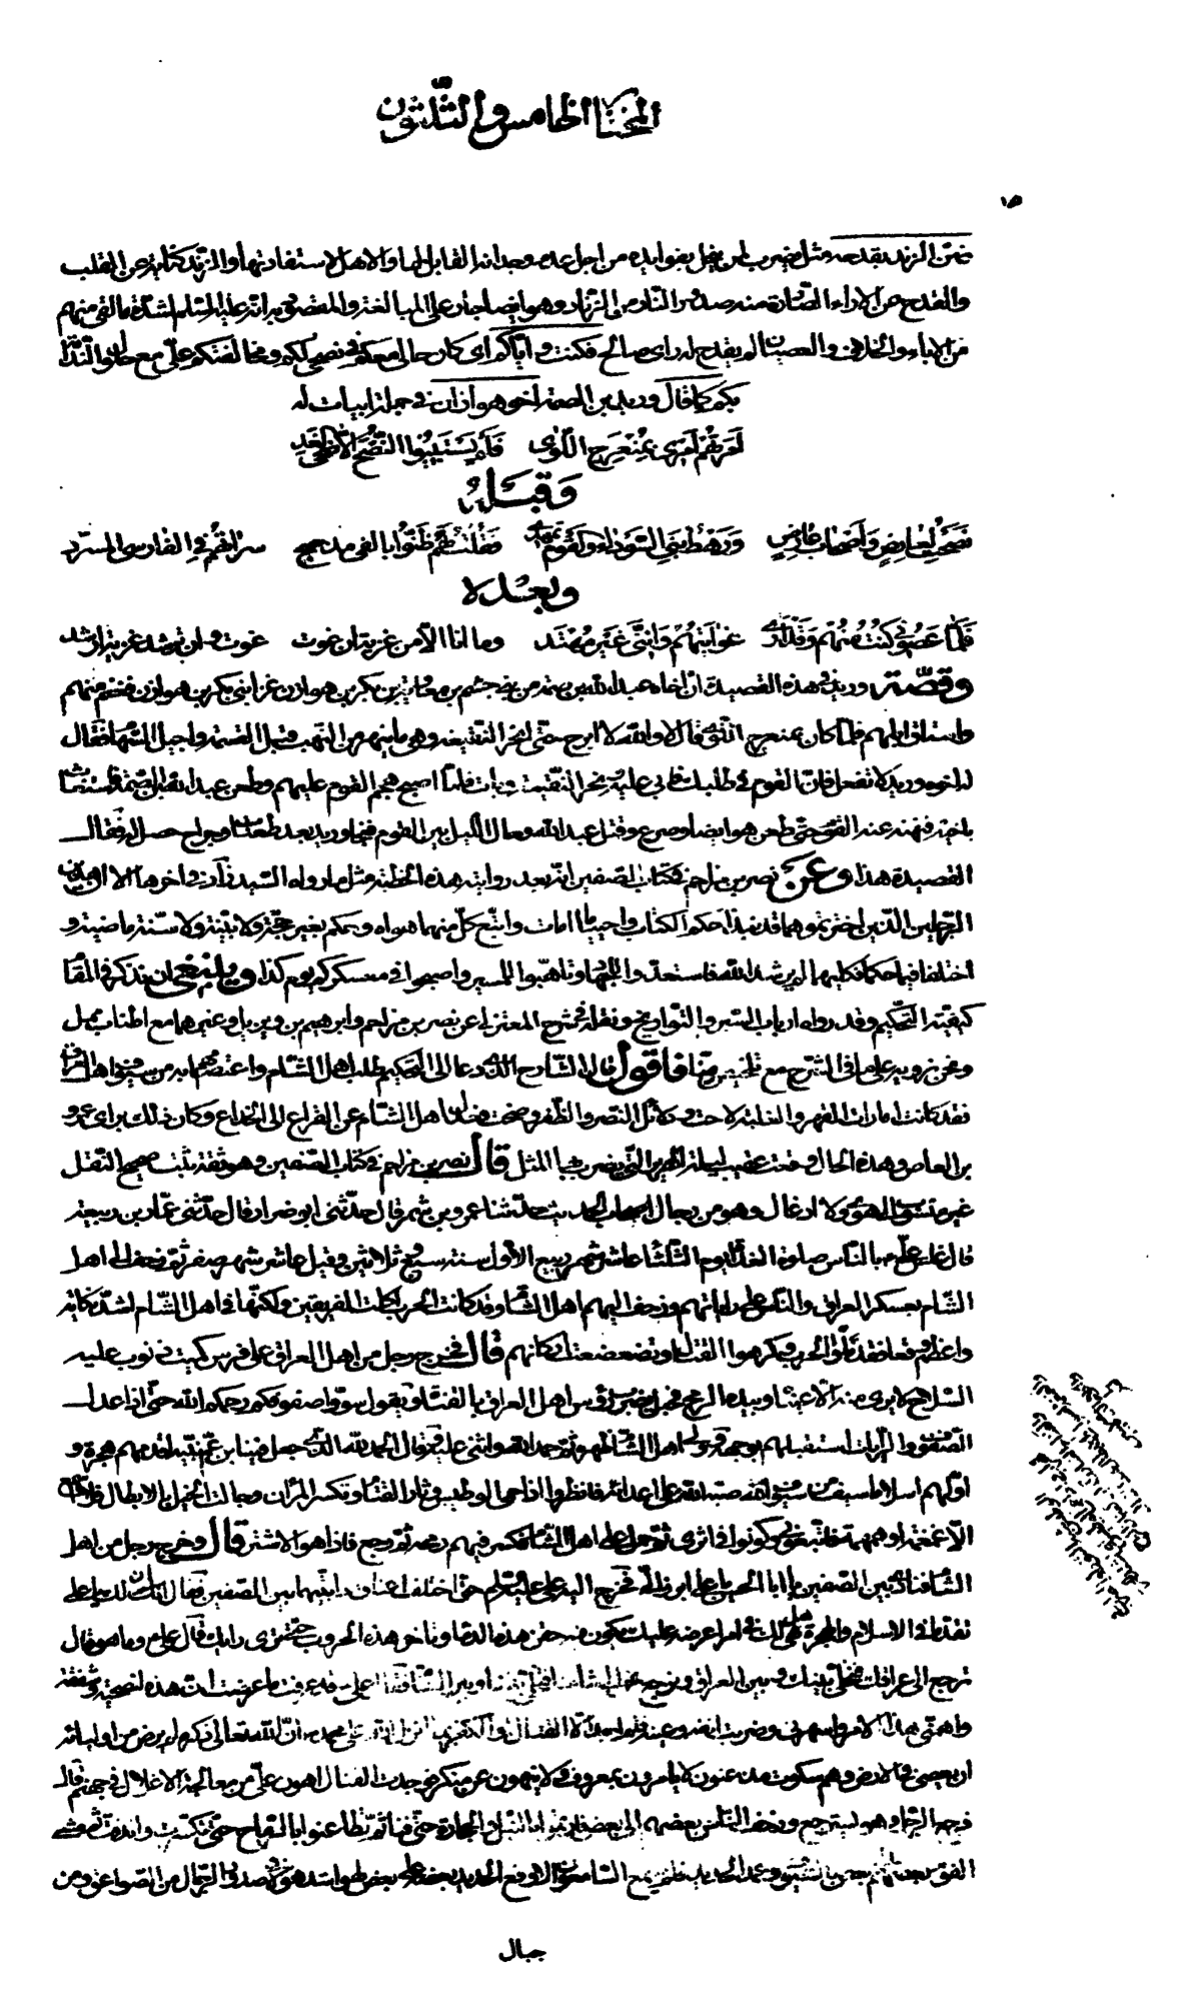 المختار الخامس والثلثون
ضنّ الزند بقدحه مثل يضرب لمن يبخل بفوايده من اجل عدم وجدانه القابل لها والاهل لاستفادتها والزند كناية عن القلب
والقدح عن الاراء الصادرة منه صدور النار من الزناد وهو ايضا جار على المبالغة والمقصود به انه عليه السلم لشدة ما لقى منهم
من الاباء والخلاف والعصيان لم يقدح له راى صالح فكنت وايّاكم اى كان حالى معكم فى نصحى لكم ومخالفتكم علىّ مع حلول الندامة
بكم كما قال دريد بن الصمة اخو هوازن فى جملة ابيات له
اَمَرتُهُم اَمرى بِمُنعَرِج اللّوى فَلَم يَستَبينُوا النُّصحَ الّا ضُحَى الغَدِ
وَقبَلهُ
نَصَحتُ لِعارِضٍ وَاَصحابِ عارِضٍ وَرَهطِ بَنِى السَّوداءِ والقَومُ فَقُلتُ لَهُم ظُنُّوا بالفى مدجج سراتهم فى الفارسى المسرّد
وبعده
فَلَمّا عَصَونى كُنتُ مِنهُم وَقَد اَرى غوايتهم وَاَنَّنى غَير مُهتَد وما انا الّا من غزية ان غوت غويت وان ترشد غزية ارشد
وقصّة دريد فى هذه القصيدة انّ اخاه عبد الله بن صمة من بنى جشم بن معاوية بن بكر بن هوازن غزا بنى بكر بن هوازن فغنم منهم
واستاق ابلهم فلمّا كان بمنعرج اللوى قال لا والله لا ابرح حتّى انحر النقيعة وهى ما ينحر من النهب قبل القسمة واجيل السهام فقال
له اخوه دريد لا تفعل فانّ القوم فى طلبك فابى عليه ونحر النقيعة وبات فلمّا اصبح هجم القوم عليهم وطعن عبد الله بن الصمة فاستغاث
باخيه فنهنه عنه القوم حتّى طعن هو ايضا وصرع وقتل عبد الله وحال الليل بين القوم فنجا دريد بعد طعنات وجراح حصل له فقال
القصيدة هذا وعن نصر بن مزاحم فى كتاب الصفين انّه بعد رواية هذه الخطبة مثل ما رواه السّيد زاد فى اخرها الا ان هذين
الرجلين الذين اخترتموهما قد نبذا حكم الكتاب واحييا ما امات واتّبع كلّ منهما هواه وحكم بغير حجّة ولا بيّنة ولا سنّة ماضية و
اختلفا فيما حكما فكلاهما لم يرشد الله فاستعدّوا للجهاد وتاهّبوا للمسير واصبحوا فى معسكركم يوم كذا وينبغى ان نذكر فى المقام
كيفيّة التحكيم وقد رواه ارباب السّير والتواريخ ونقله فى شرح المعتزلى عن نصر بن مزاحم وابرهيم بن ديزيل وغيرهما مع اطناب ممل
ونحن نرويه على ما فى الشرح مع تلخيص منّا فاقول قال الشّارح الذى دعا الى التحكيم طلب اهل الشّام له واعتصامهم به من سيوف اهل العراق
فقد كانت امارات القهر والغلبة لاحت ودلائل النصر والظفر وضحت فعدل اهل الشّام عن القراع الى الخداع وكان ذلك براى عمرو
بن العاص وهذه الحال وقعت عقيب ليلة الهرير التى يضرب بها المثل قال نصر بن مزاحم فى كتاب الصّفين وهو ثقة ثبت صحيح النقل
غير منسوب الى هوى ولا ادغال وهو من رجال اصحاب الحديث حدّثنا عمرو بن شمر قال حدّثنى ابو ضرار قال حدّثنى عمّار بن ربيعة
قال غلس علىّ بالنّاس صلوة الغداة يوم الثّلثا عاشر شهر ربيع الاوّل سنة سبع وثلاثين وقيل عاشر شهر صفر ثمّ زحف الى اهل
الشّام بعسكر العراق والنّاس على راياتهم وزحف اليهم اهل الشّام وقد كانت الحرب اكلت الفريقين ولكنّها فى اهل الشّام اشدّ نكاية
واعظم وقعا فقد ملّوا الحرب وكرهوا القتال وتضعضعت اركانهم قال فخرج رجل من اهل العراق على فرس كميت ذنوب عليه
السّلاح لا يرى منه الّا عيناه وبيده الرمح فجعل يضرب رؤس اهل العراق بالقناة ويقول سوّوا صفوفكم رحمكم الله حتّى اذا عدل
الصّفوف والرّايات استقبلهم بوجهه وولّى اهل الشام ظهره ثمّ حمد الله واثنى عليه وقال الحمد لله الّذى جعل فينا ابن عمّ نبيّه اقدمهم هجرة و
اوّلهم اسلاما سيف من سيوف الله صبّه الله على اعدائه فانظروا اذا حمى الوطيس وثار القتام وتكسّر المران وجالت الخيل بالابطال فلا اسمع
الّا غمغمة او همهمة فاتّبعونى وكونوا فى اثرى ثمّ حمل على اهل الشّام فكسر فيهم رمحه ثمّ رجع فاذا هو الاشتر قال وخرج رجل من اهل
الشّام فنادى بين الصّفين يا ابا الحسن يا على ابرز الىّ فخرج اليه على عليه السلم حتّى اختلفت اعناق دابّتيهما بين الصّفين فقال انّ لك يا على
لقدما فى الاسلام والهجرة فهل لك فى امر اعرضه عليك يكون فيه حقن هذه الدّماء وتاخر هذه الحروب حتّى ترى رايك قال على وما هو قال
ترجع الى عراقك فنخلّى بينك وبين العراق ونرجع نحن الى شامنا فتخلّى بيننا وبين الشّام فقال على قد عرفت ما عرضت ان هذه لنصيحة وشفقة
ولقد اهمنى هذا الامر واسهرنى وضربت انفه وعينه فلم اجد الّا القتال او الكفر بما انزل الله على محمد انّ الله تعالى ذكره لم يرض من اوليائه
ان يعصى فى الارض وهم سكوت مذعنون لا يامرون بمعروف ولا ينهون عن منكر فوجدت القتال اهون علىّ من معالجة الاغلال فى جهنم قال
فرجع الرّجل وهو يسترجع وزحف النّاس بعضهم الى بعض فارتموا بالنّبل والحجارة حتّى فنيت ثمّ تطاعنوا بالرّماح حتّى تكسّرت واندقت ثمّ مشى
القوم بعضهم الى بعض بالسّيوف وعمد الحديد فلم يسمع السّامعون الّا وقع الحديد بعضه على بعض لهو اشد هولا فى صدور الرّجال من الصّواعق ومن
جبال